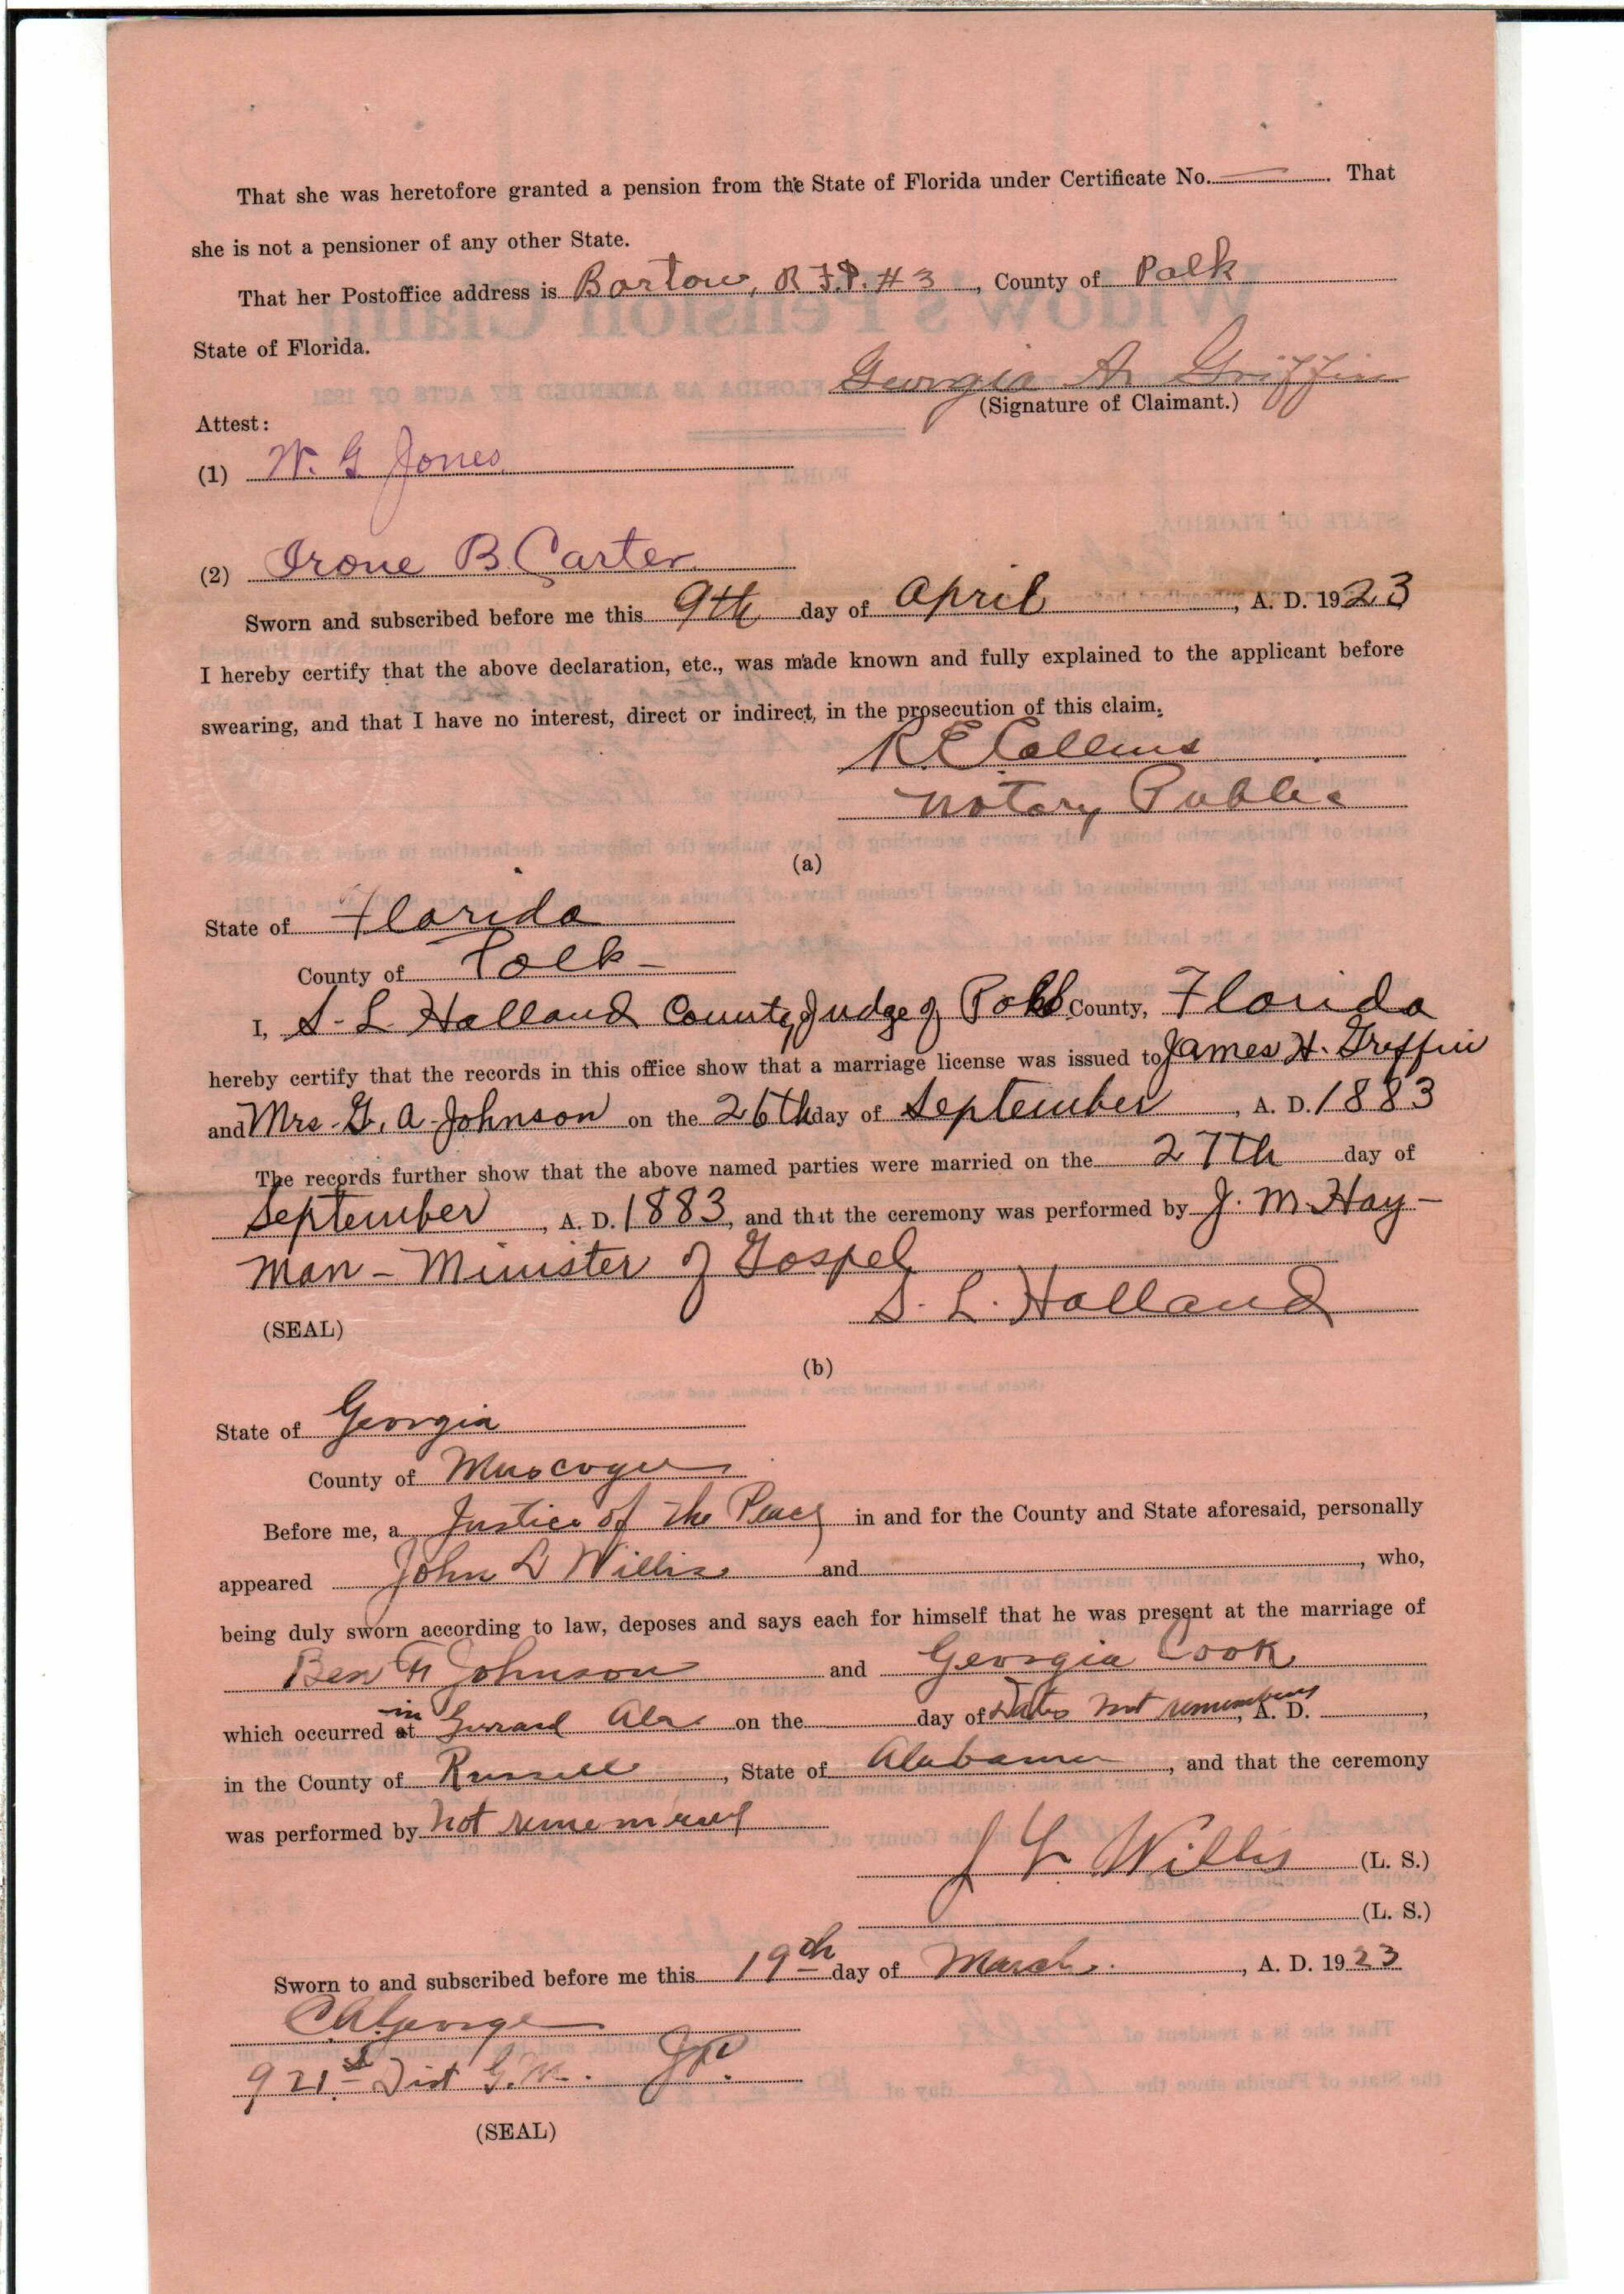 That she was heretofore granted a pension from the State of Florida under Certificate No. ——. That
she is not a pensioner of any other State.
That her Postoffice address is Bartow, R.F.D. #3, County of Polk
State of Florida.
Georgia A. Griffin
(Signature of Claimant.)
Attest:
(1) W. G Jones
(2) Irone B. Carter
Sworn and subscribed before me this 9th day of April, A. D. 1923
I hereby certify that the above declaration, etc., was made known and fully explained to the applicant before
swearing, and that I have no interest, direct or indirect, in the prosecution of this claim.
R. E. Collins
Notary Public
(a)
State of Florida
County of Polk
I, S. L. Holland County Judge of Polk County, Florida
hereby certify that the records in this office show that a marriage license was issued to James H. Griffin
and Mrs. G. A. Johnson on the 26th day of September, A. D. 1883
The records further show that the above named parties were married on the 27th day of
September, A. D. 1883, and that the ceremony was performed by J. M. Hay-
man - Minister of Gospel
S. L. Holland
(SEAL)
(b)
State of Georgia
County of Muscogee
Before me, a Justice of the Peace in and for the County and State aforesaid, personally
appeared John L Willis and , who,
being duly sworn according to law, deposes and says each for himself that he was present at the marriage of
Ben F Johnson and Georgia Cook
which occurred at in Girard Ala on the day of Date not remembered, A. D. ,
in the County of Russell, State of Alabama, and that the ceremony
was performed by not rememered
J L Willis (L. S.)
(L. S.)
Sworn to and subscribed before me this 19th day of March, A. D. 1923
C A George
921st Dist G.M. J.P.
(SEAL)